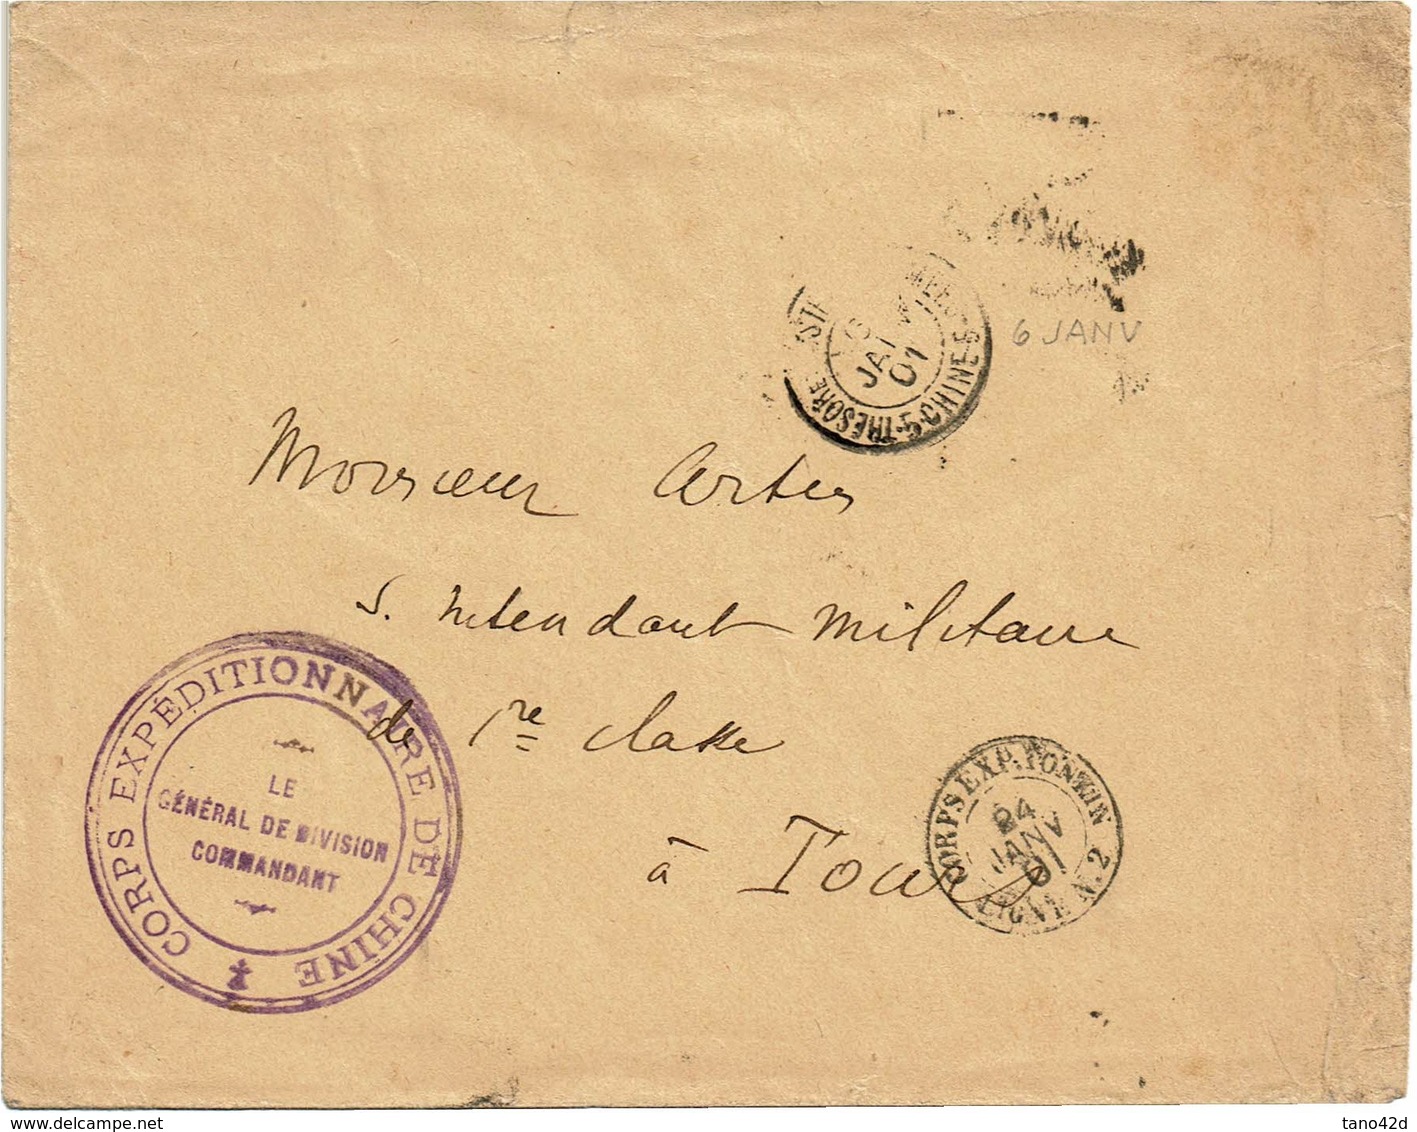 TRÉSOR ET POSTES AUX ARMÉES · 5 · CHINE 5
6
JANV
01
6 JANV
Monsieur
S. Intendant militaire
de 1re classe
à Tours
CORPS EXPÉDITIONNAIRE DE CHINE
LE
GÉNÉRAL DE DIVISION
COMMANDANT
CORPS EXP. TONKIN
24
JANV
01
LIGNE N. 2
www.delcampe.net
tano42d